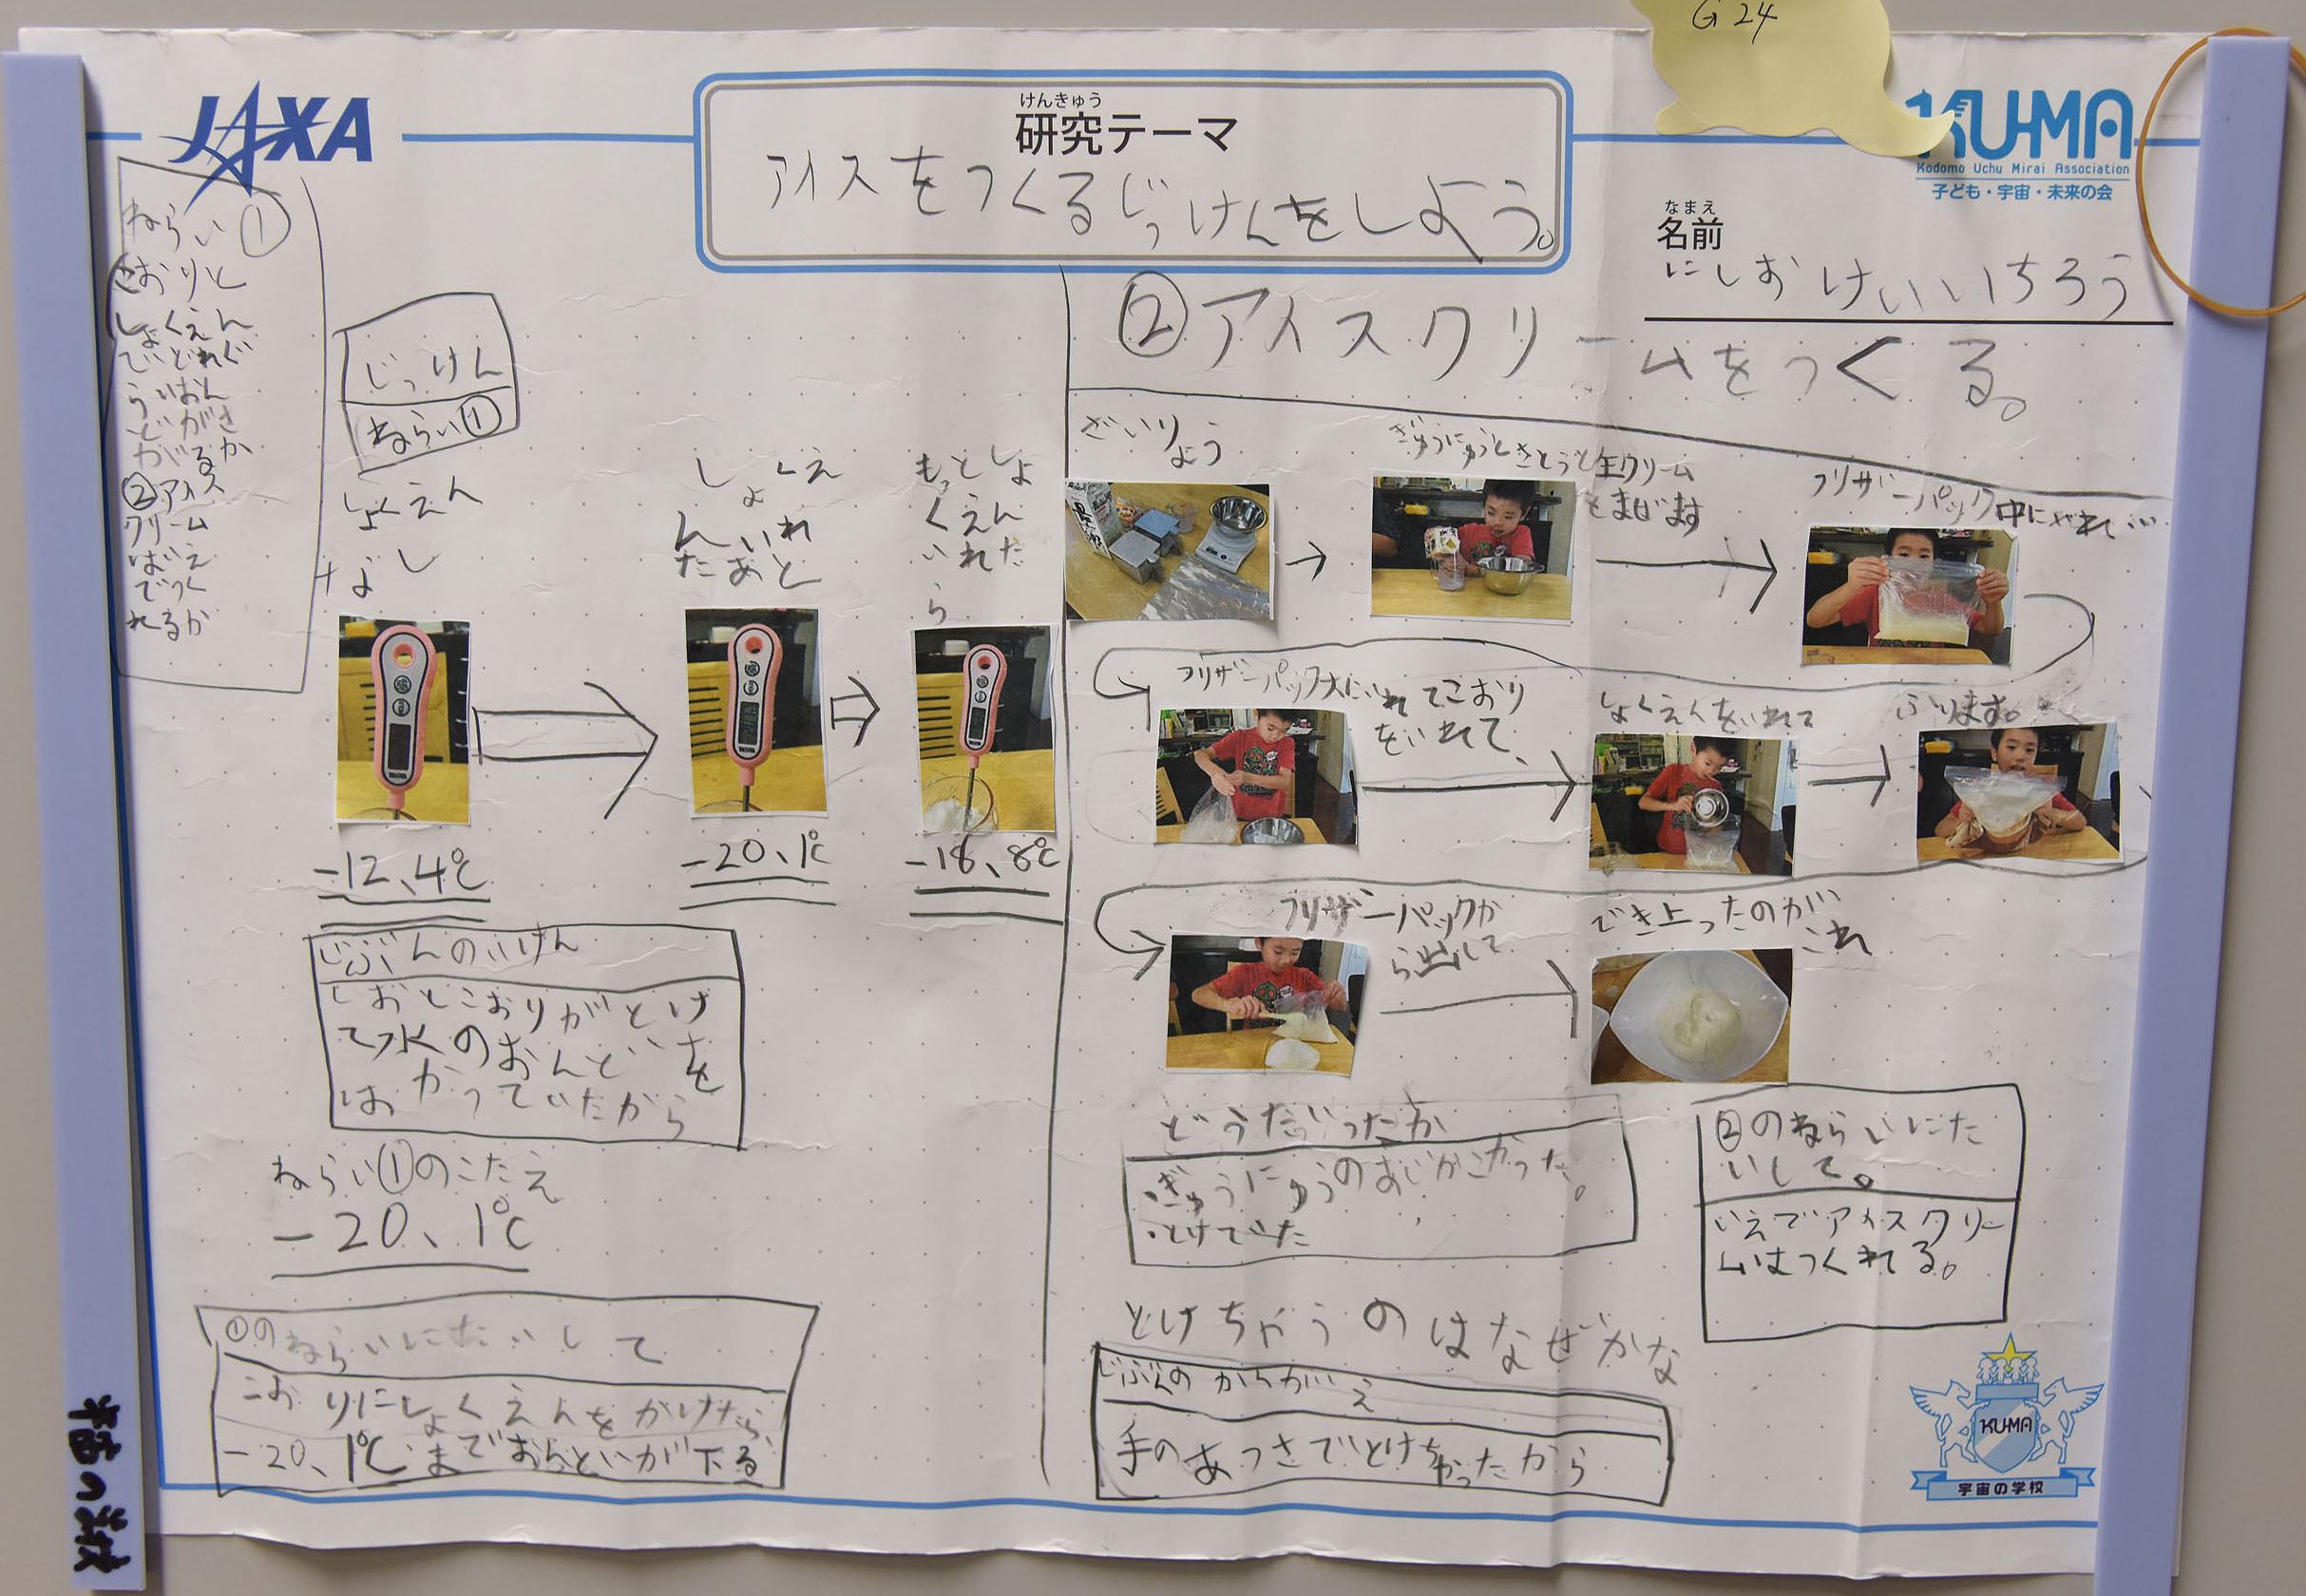 G24
JAXA
けんきゅう
研究テーマ
アイスをつくるじっけんをしよう。
KUMA
Kodomo Uchu Mirai Association
子ども・宇宙・未来の会
なまえ
名前
にしおけいいちろう
ねらい①
こおりと
しょくえん
でどれぐ
らいおん
どがさ
がるか
②アイス
クリーム
はいえ
でつく
れるか
じっけん
ねらい①
しょくえん
なし
-12、4℃
しょくえ
んいれ
たあと
-20、1℃
もっとしょ
くえん
いれた
ら
-18、8℃
じぶんのいけん
しおとこおりがとけ
て水のおんどを
はかっていたから
ねらい①のこたえ
-20、1℃
①のねらいにたいして
こおりにしょくえんをかけたら、
-20、1℃までおんどが下る
②アイスクリームをつくる。
ざいりょう
ぎゅうにゅうとさとうと生クリーム
をまぜます
フリザーパック中にいれて
フリザーパック大にいれてこおり
をいれて、
しょくえんをいれて
ふります。
フリザーパックか
ら出して
でき上ったのが
これ
どうだいったか
・ぎゅうにゅうのあじがこかった。
・とけていた
②のねらいにた
いして。
いえでアイスクリー
ムはつくれる。
とけちゃうのはなぜかな
じぶんのかんがえ
手のあつさでとけちゃったから
KUMA
宇宙の学校
宇宙の学校